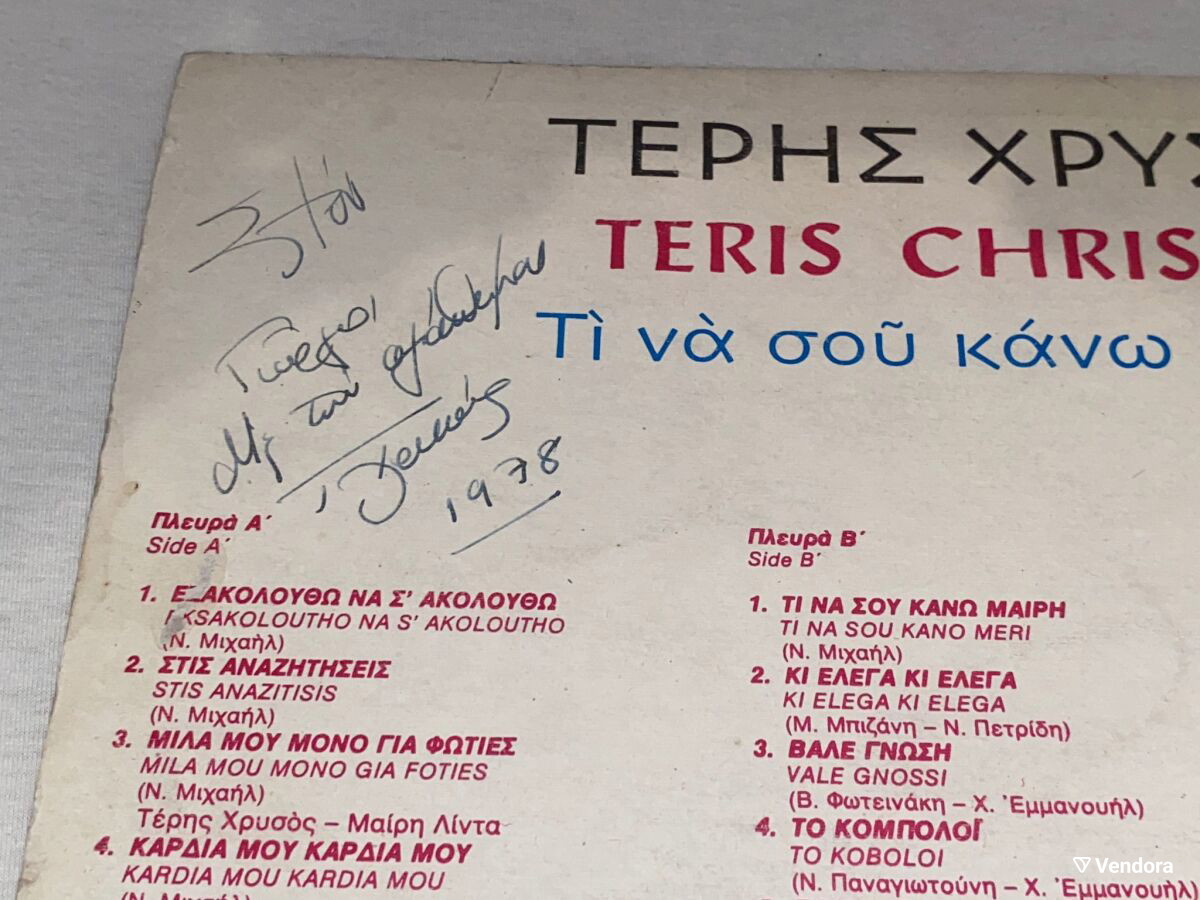 ΤΕΡΗΣ ΧΡΥΣ
TERIS CHRIS
Τὶ νὰ σοῦ κάνω
Στόν
Γιώργο,
Με την αγάπη μου
1978
Πλευρὰ Α΄
Side A΄
1. ΕΞΑΚΟΛΟΥΘΩ ΝΑ Σ' ΑΚΟΛΟΥΘΩ
EKSAKOLOUTHO NA S' AKOLOUTHO
(Ν. Μιχαὴλ)
2. ΣΤΙΣ ΑΝΑΖΗΤΗΣΕΙΣ
STIS ANAZITISIS
(Ν. Μιχαήλ)
3. ΜΙΛΑ ΜΟΥ ΜΟΝΟ ΓΙΑ ΦΩΤΙΕΣ
MILA MOU MONO GIA FOTIES
(Ν. Μιχαήλ)
Τέρης Χρυσὸς – Μαίρη Λίντα
4. ΚΑΡΔΙΑ ΜΟΥ ΚΑΡΔΙΑ ΜΟΥ
KARDIA MOU KARDIA MOU
(Ν. Μιχαήλ)
Πλευρὰ Β΄
Side B΄
1. ΤΙ ΝΑ ΣΟΥ ΚΑΝΩ ΜΑΙΡΗ
TI NA SOU KANO MERI
(Ν. Μιχαήλ)
2. ΚΙ ΕΛΕΓΑ ΚΙ ΕΛΕΓΑ
KI ELEGA KI ELEGA
(Μ. Μπιζάνη – Ν. Πετρίδη)
3. ΒΑΛΕ ΓΝΩΣΗ
VALE GNOSSI
(Β. Φωτεινάκη – Χ. Ἐμμανουήλ)
4. ΤΟ ΚΟΜΠΟΛΟΪ
TO KOBOLOI
(Ν. Παναγιωτούνη – Χ. Ἐμμανουήλ)
Vendora